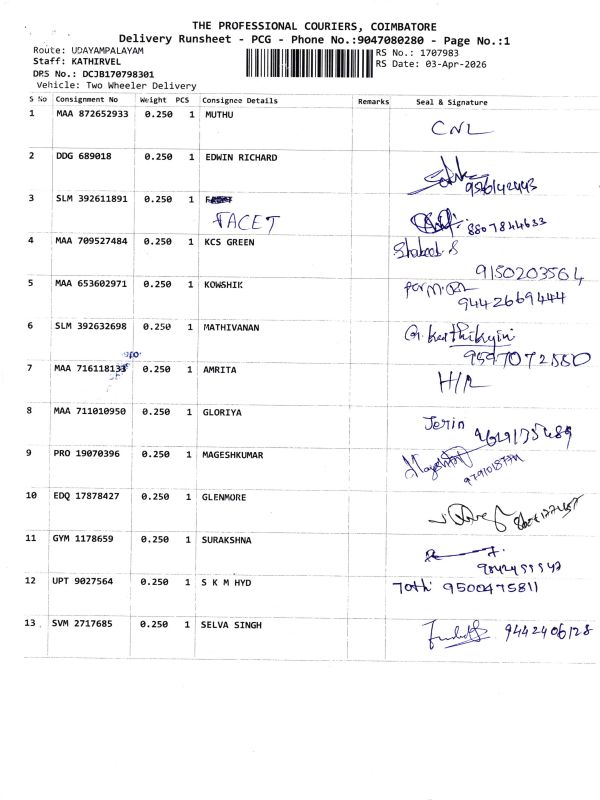 THE PROFESSIONAL COURIERS, COIMBATORE
Delivery Runsheet - PCG - Phone No.:9047080280 - Page No.:1
Route: UDAYAMPALAYAM
RS No.: 1707983
Staff: KATHIRVEL
RS Date: 03-Apr-2026
DRS No.: DCJB170798301
Vehicle: Two Wheeler Delivery
S No Consignment No Weight PCS Consignee Details Remarks Seal & Signature
1 MAA 872652933 0.250 1 MUTHU
CNL
2 DDG 689018 0.250 1 EDWIN RICHARD
3 SLM 392611891 0.250 1
FACET
8807844633
4 MAA 709527484 0.250 1 KCS GREEN
Shakeel S
9150203564
5 MAA 653602971 0.250 1 KOWSHIK
9442669444
6 SLM 392632698 0.250 1 MATHIVANAN
G. Karthikyini
9597072550
7 MAA 716118133 0.250 1 AMRITA
H/R
8 MAA 711010950 0.250 1 GLORIYA
Jerin
9 PRO 19070396 0.250 1 MAGESHKUMAR
10 EDQ 17878427 0.250 1 GLENMORE
11 GYM 1178659 0.250 1 SURAKSHNA
12 UPT 9027564 0.250 1 S K M HYD
Tothi 9500475811
13 SVM 2717685 0.250 1 SELVA SINGH
9442406128